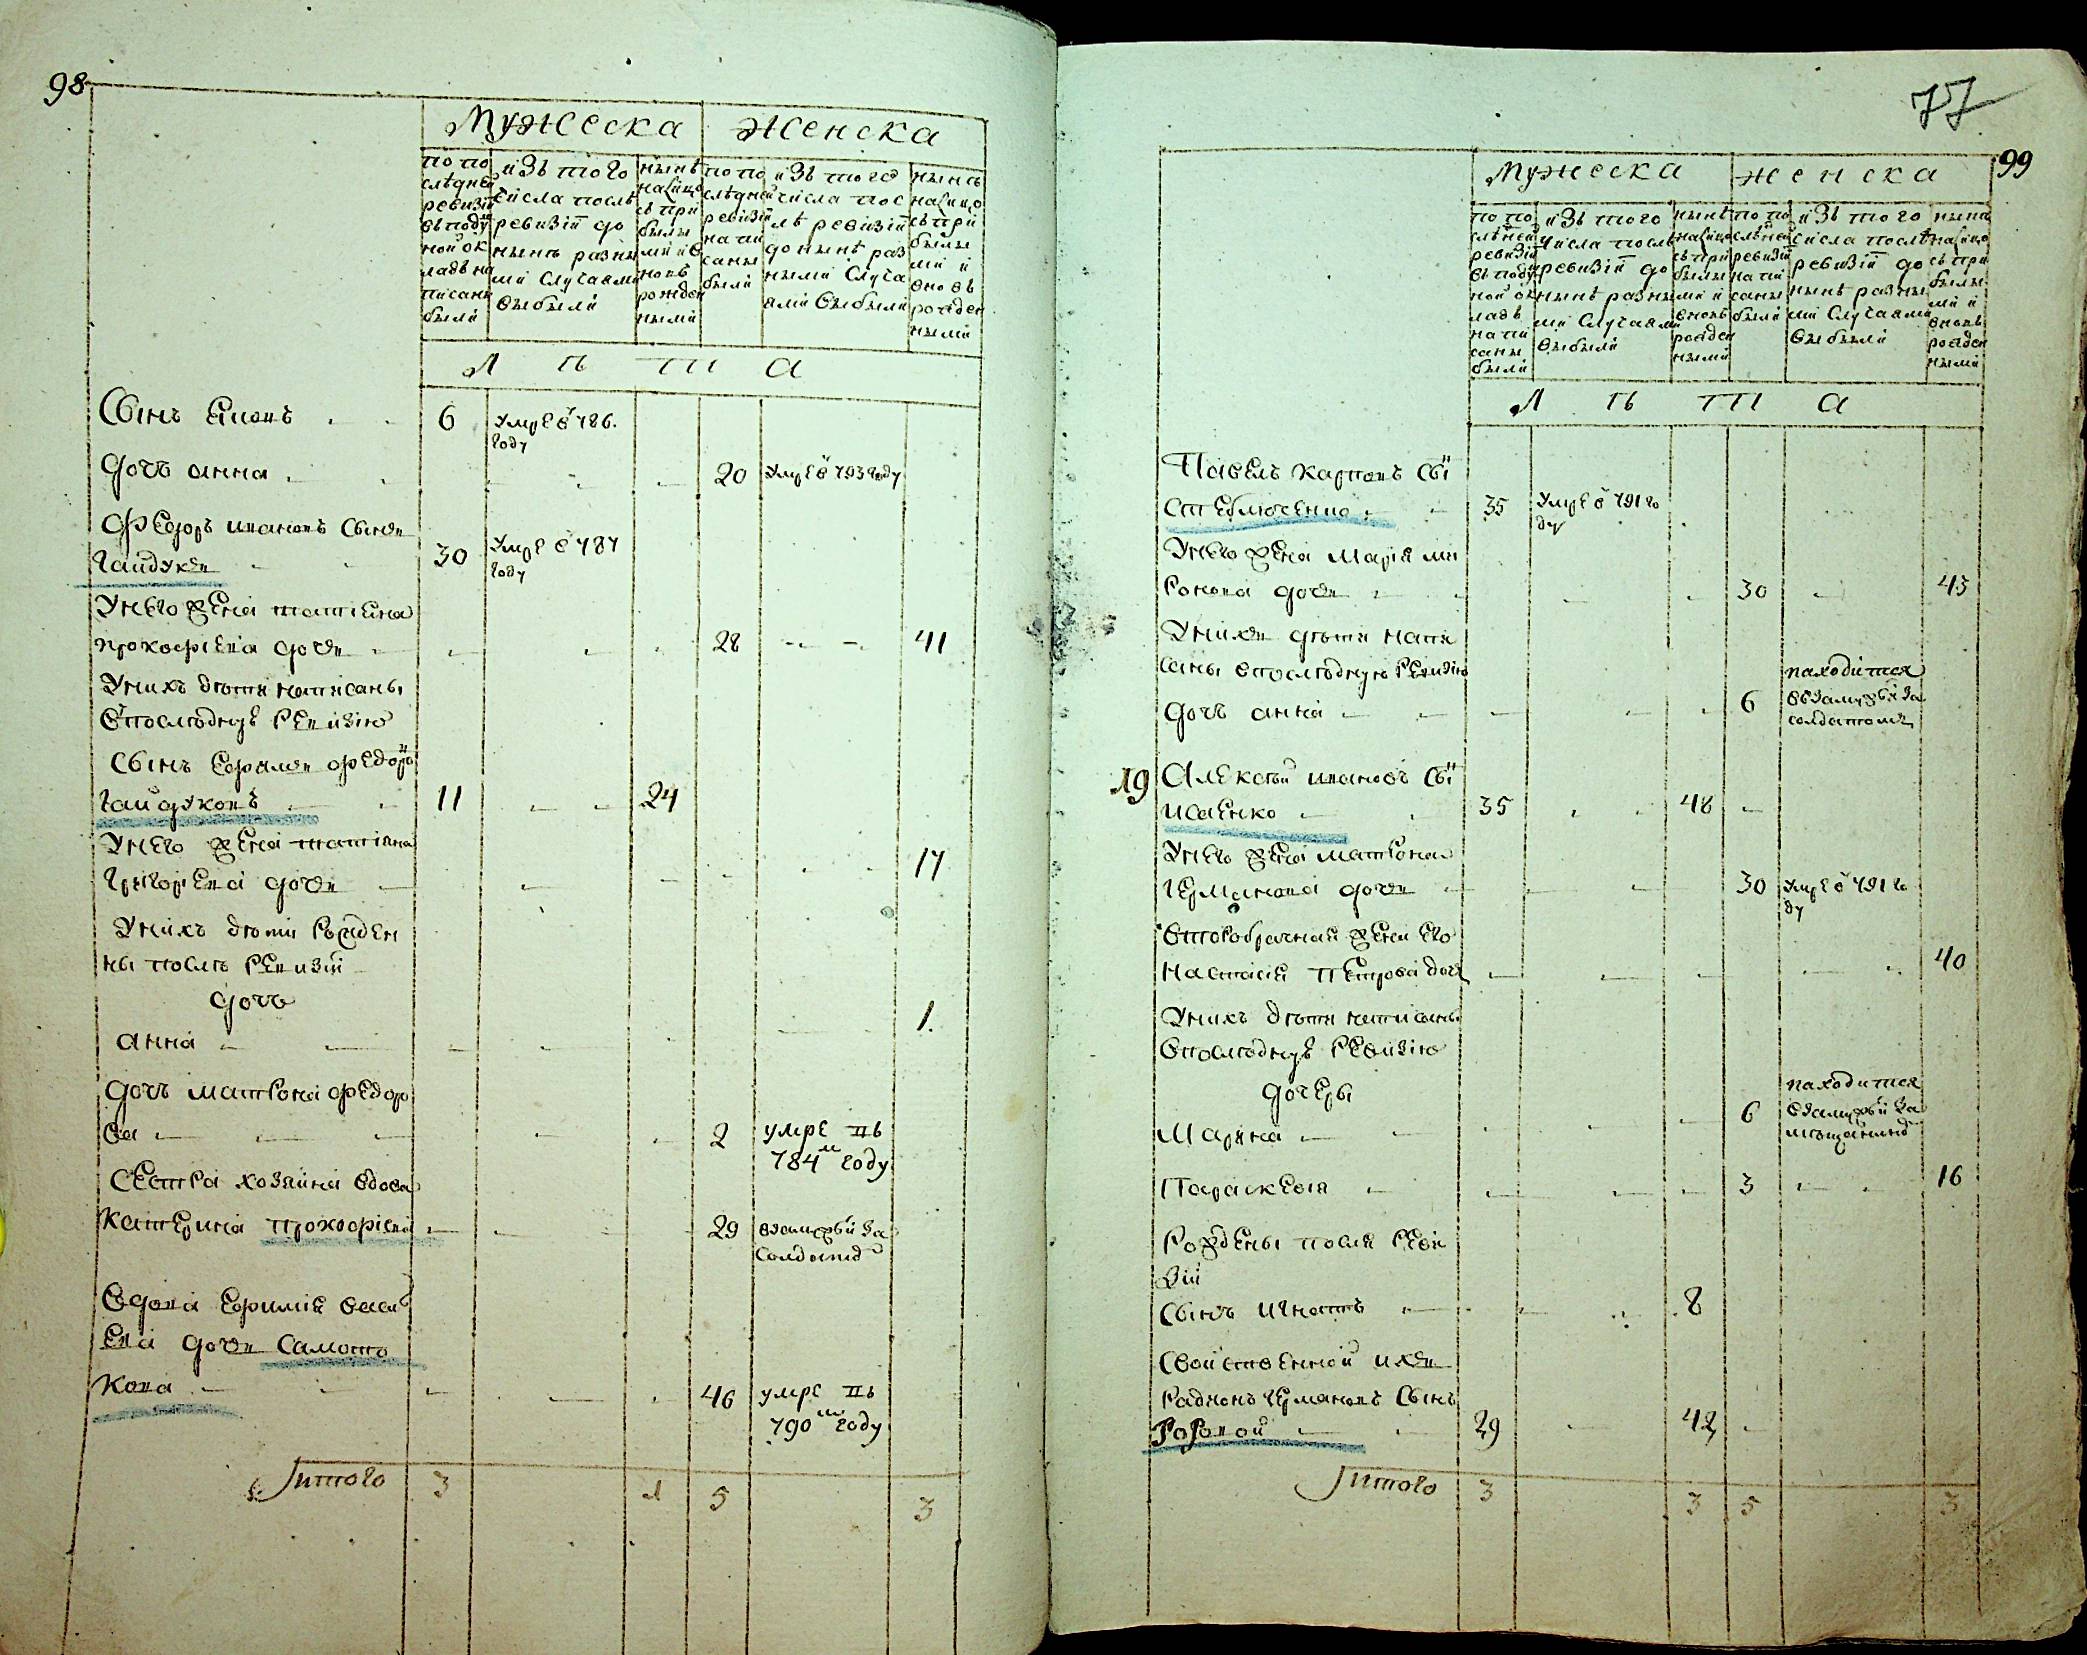 98
Мужеска Женска
по по
слѣдне
ревизіи
въ поду
ной ок
ладъ на
писаны
были
изъ того
числа послѣ
ревизіи до
нынѣ разны
ми случаями
выбыли
нынѣ
налицо
съ при
былы
ми и в
новь
рожден
ными
по по
слѣдней
ревизіи
напи
саны
были
изъ того
числа пос
лѣ ревизіи
до нынѣ раз
ными случа
ями выбыли
нынѣ
налицо
съ при
былы
ми и
вновь
рожден
ными
Л ѣ т а
Сынъ 6 умре в 786.
году
дочь анна 20 умре в 793 году
Федоръ ивановъ сынъ
гайдукъ 30 умре в 787
году
У него жена татиена
прокофиева дочь 28 41
У нихъ дѣти написаны
в последнуъ ревизию
сынъ ефимъ федоро
гайдуковъ 11 24
У него жена татиана
григориева дочь 17
У нихъ дѣти рожден
ны послѣ ревизии
дочь
анна 1.
дочь матрона федоро
ва 2 умре въ
784м году
Сестра хозяина вдова
катерина прокофиева 29 взамужъи за
солдатѡ
Вдова ефимия васил
ева дочь самотѣ
кова 46 умре въ
790м году
Итого 3 1 5 3
77
99
Мужеска Женска
по по
слѣней
ревизіи
въ поду
ной ок
ладъ
напи
саны
были
изъ того
числа послѣ
ревизіи до
нынѣ разны
ми случаями
выбыли
нынѣ
налицо
съ при
былы
ми и
вновь
рожден
ными
по по
слѣней
ревизіи
напи
саны
были
изъ того
числа послѣ
ревизіи до
нынѣ разны
ми случаями
выбыли
нынѣ
налицо
съ при
былы
ми и
вновь
рожден
ными
Л ѣ т а
Павелъ карповъ сы
стеблюченко 35 умре в 791 го
ду
У него жена мария ми
ронова дочь 30 43
У нихъ дѣти напи
саны в последную ревизию
дочь анна 6 находится
в взамужъи за
солдатомъ
19 Алексѣй ивановъ сы
исаенко 35 48
У него жена матрона
германова дочь 30 умре в 791 го
ду
Второбрачная жена его
настасия петрова дочь 40
У нихъ дѣти написаны
в последнуъ ревизию
дочеры
Марина 6 находится
взамужъи за
мѣщанинѡ
Параскевия 3 16
Рождены после реви
зии
сынъ игнатъ 8
Свойственной ихъ
Радионъ германовъ сынъ
розовой 29 42
Итого 3 3 5 3